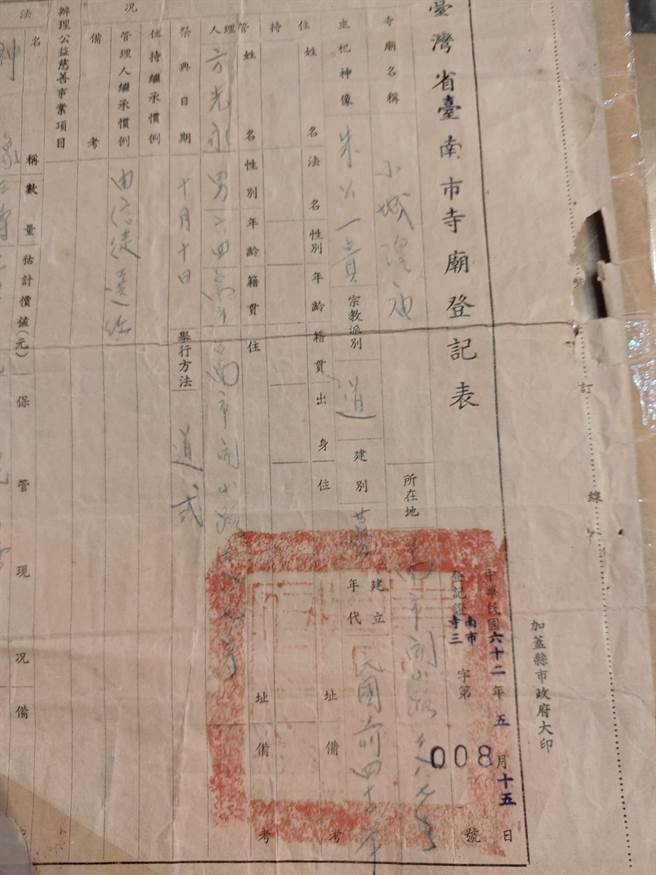 臺灣省臺南市寺廟登記表
寺廟名稱
小城隍廟
所在地
南市開山路
中華民國六十二年五月十五日
登記證南市寺三字第008號
加蓋縣市政府大印
訂線
主祀神像
朱公一貴
宗教派別
道
建別
募
建立年代
民國前四十年
備考
住持
姓名
法名
性別
年齡
籍貫
出身
住址
備考
管理人
姓名
性別
年齡
籍貫
住址
備考
方光永
男
六四
南市開山路
祭典日期
十月十日
舉行方法
道式
住持繼承慣例
管理人繼承慣例
由信徒選任
備考
況
辦理公益慈善事業項目
法
名稱
數量
估計價值(元)
保管現況
備